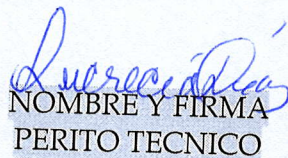 Lucrecia Díaz
NOMBRE Y FIRMA
PERITO TECNICO